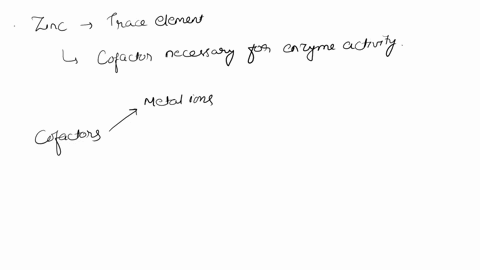 Zinc → Trace element
↳ Cofactor necessary for enzyme activity.
Metal ions
Cofactors